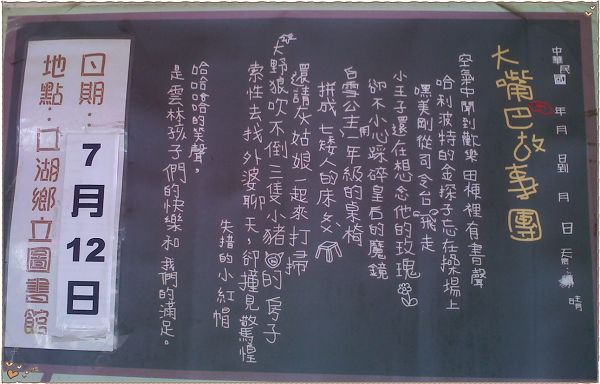 中華民國 年 月 日到 月 日 天氣：晴
大嘴巴故事團
空氣中聞到歡樂 田梗裡有書聲
哈利波特的金探子忘在操場上
嘿美剛從司令台飛走
小王子還在想念他的玫瑰
卻不小心踩碎皇后的魔鏡
白雪公主用一年級的桌椅
拼成七矮人的床
還請灰姑娘一起來打掃
大野狼吹不倒三隻小豬的房子
索性去找外婆聊天，卻撞見驚惶
失措的小紅帽
哈哈哈的笑聲。
是雲林孩子們的快樂和我們的滿足。
日期：7月12日
地點：口湖鄉立圖書館